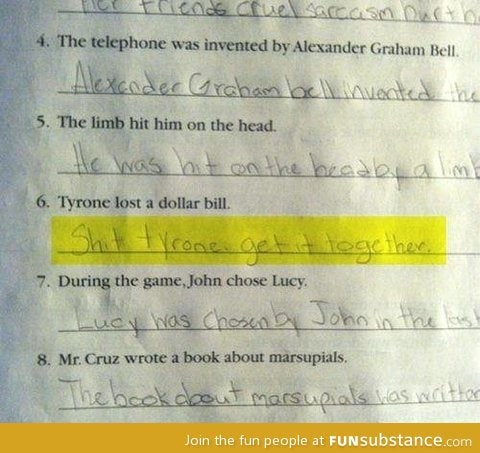 Her friends cruel sarcasm hurt h
4. The telephone was invented by Alexander Graham Bell.
Alexander Graham bell invented the
5. The limb hit him on the head.
He was hit on the head by a limb
6. Tyrone lost a dollar bill.
Shit tyrone. get it together.
7. During the game, John chose Lucy.
Lucy was chosen by John in the last
8. Mr. Cruz wrote a book about marsupials.
The book about marsupials was written
Join the fun people at FUNsubstance.com